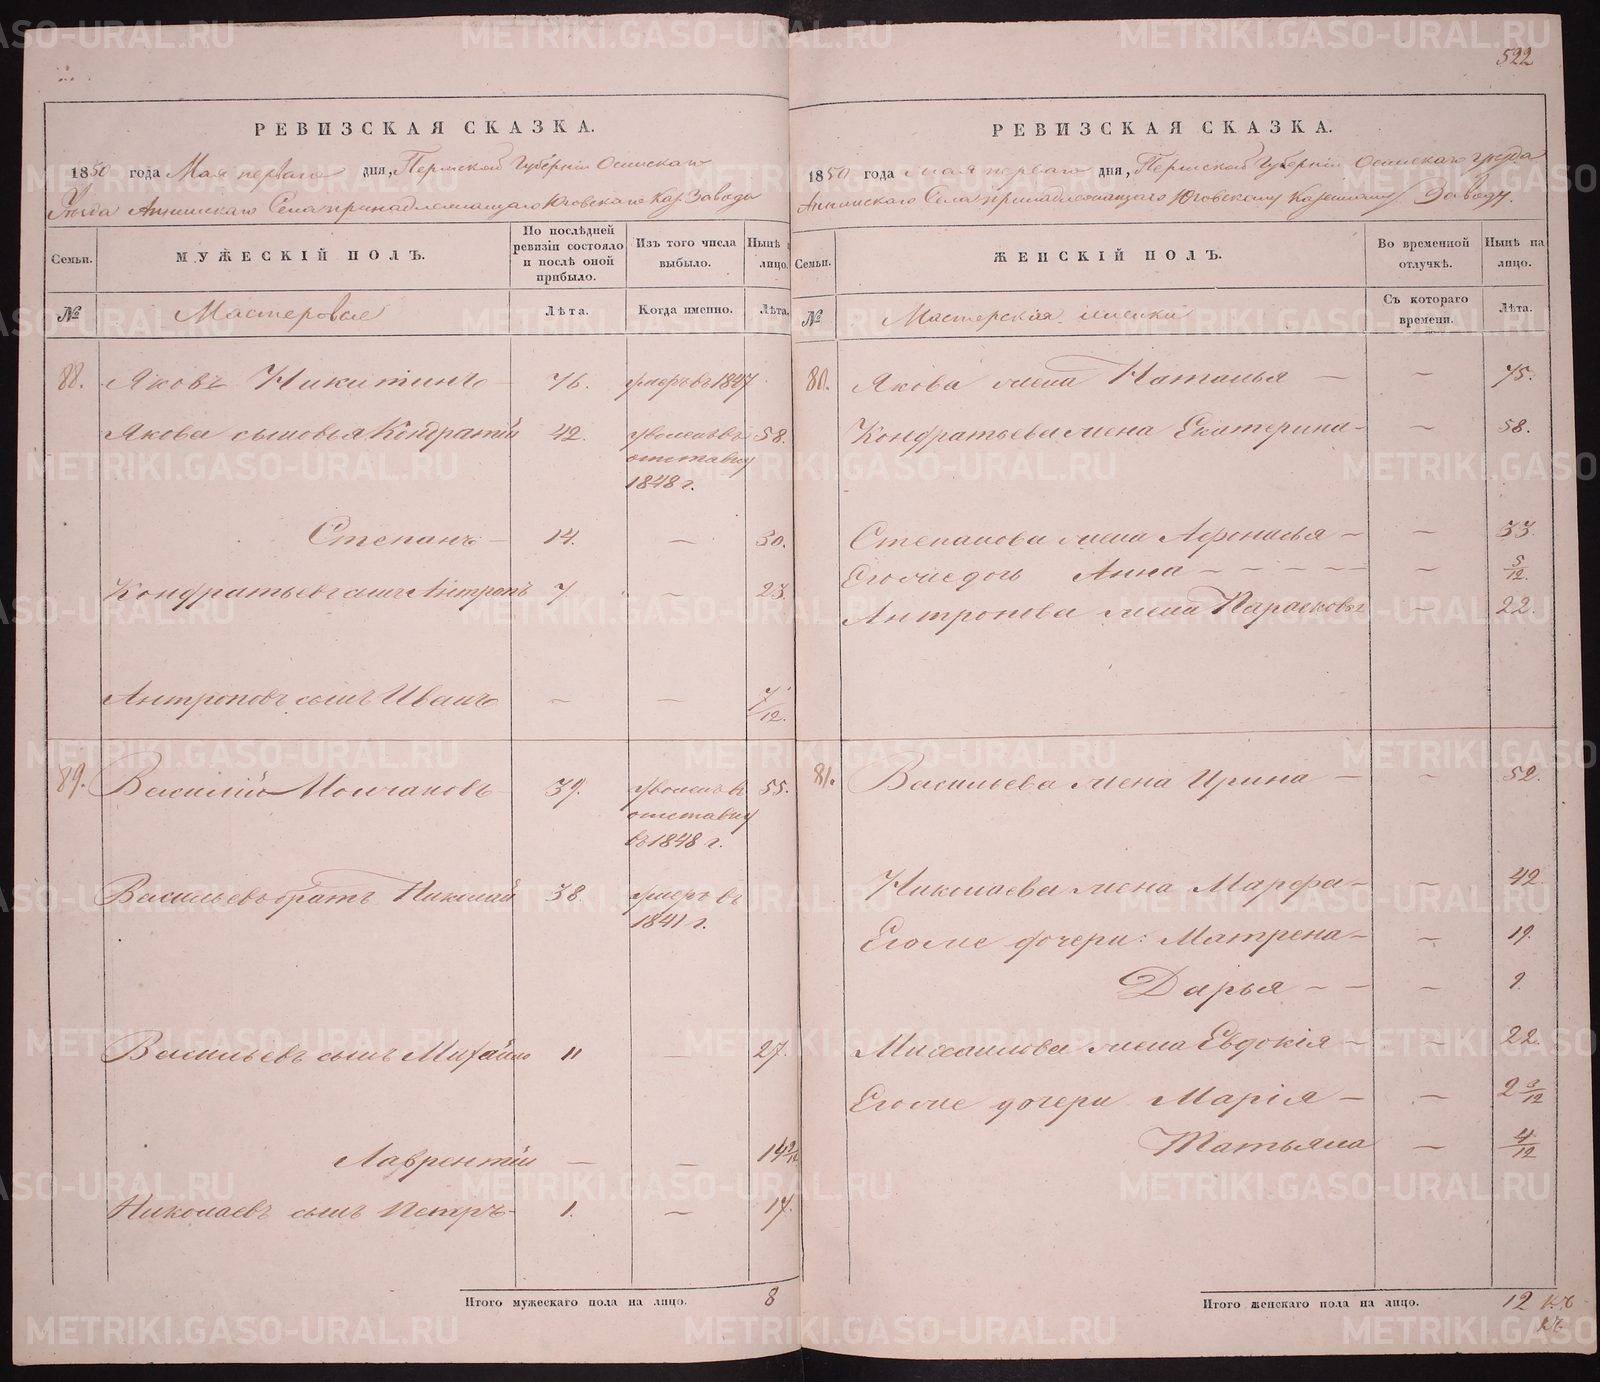 522
РЕВИЗСКАЯ СКАЗКА.
1850 года Мая перваго дня, Пермской Губерніи Осинскаго
Уезда Ашапскаго Села принадлежащаго Юговскаго Каз. Завода
Семьи. МУЖЕСКІЙ ПОЛЪ. По послѣдней ревизіи состояло и послѣ оной прибыло. Изъ того числа выбыло. Нынѣ на лицо.
№ Мастеровые Лѣта. Когда именно. Лѣта.
88. Яковъ Никитинъ 76. умеръ въ 1847
Якова сыновья Кондратій 42. уволенъ въ 58.
отставку
1848 г.
Степанъ — 14. — 30.
Кондратьевъ сынъ Антропъ 7 — 23.
Антроповъ сынъ Иванъ — — 7/12.
89. Василій Молчановъ 39. уволенъ въ 55.
отставку
въ 1848 г.
Васильевъ братъ Николай 38. умеръ въ
1841 г.
Васильевъ сынъ Михайло 11 — 27.
Лаврентій — — 14 2/12
Николаевъ сынъ Петръ — 1. — 17.
Итого мужескаго пола на лицо. 8
РЕВИЗСКАЯ СКАЗКА.
1850 года мая перваго дня, Пермской Губерніи Осинскаго уезда
Села принадлежащаго Юговскому Казенному Заводу.
Семьи. ЖЕНСКІЙ ПОЛЪ. Во временной отлучкѣ. Нынѣ на лицо.
№ Мастерскія женки Съ котораго времени. Лѣта.
80. Якова жена Наталья — — 75.
Кондратьева жена Екатерина — — 58.
Степанова жена Афонасья — — 33.
Егожъ дочь Анна — — — — — 5/12.
Антропова жена Парасковья — 22.
81. Васильева жена Ирина — — 52.
Николаева жена Марфа — — 42.
Егоже дочери: Матрена — — 19.
Дарья — — — 9.
Михаилова жена Евдокія — — 22.
Егоже дочери Марія — — 2 9/12
Татьяна — 4/12
Итого женскаго пола на лицо. 12
METRIKI.GASO-URAL.RU